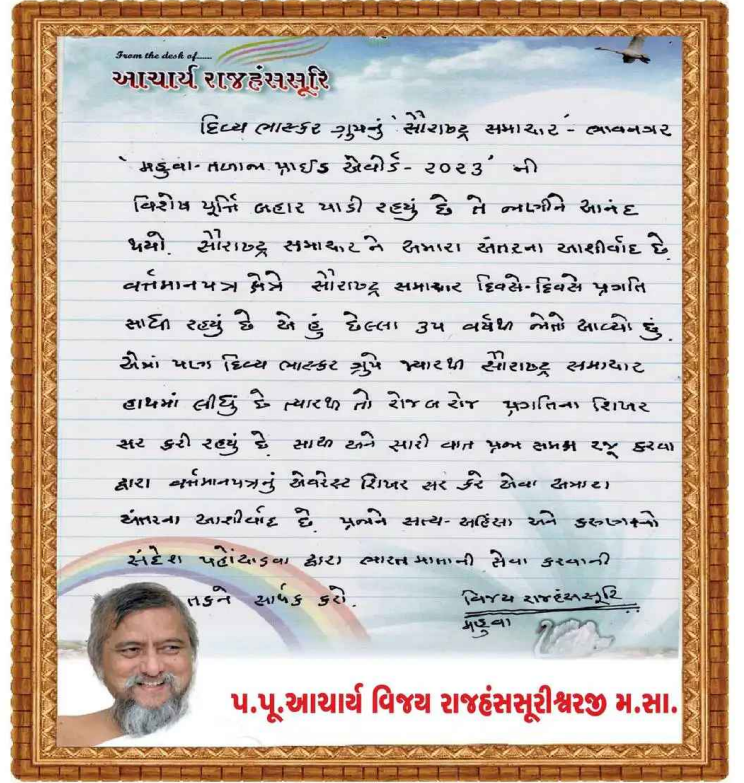 From the desk of......
આચાર્ય રાજહંસસૂરિ
દિવ્ય ભાસ્કર ગ્રુપનું 'સૌરાષ્ટ્ર સમાચાર'- ભાવનગર
'મહુવા-તળાજા પ્રાઈડ એવોર્ડ- ૨૦૨૩' ની
વિશેષ પૂર્તિ બહાર પાડી રહયું છે તે જાણીને આનંદ
થયો. સૌરાષ્ટ્ર સમાચાર ને અમારા અંતરના આશીર્વાદ છે.
વર્તમાનપત્ર ક્ષેત્રે સૌરાષ્ટ્ર સમાચાર દિવસે-દિવસે પ્રગતિ
સાધી રહયું છે એ હું છેલ્લા ૩૫ વર્ષથી જોતો આવ્યો છું.
એમાં પણ દિવ્ય ભાસ્કર ગ્રુપે જ્યારથી સૌરાષ્ટ્ર સમાચાર
હાથમાં લીધું છે ત્યારથી તો રોજ બ રોજ પ્રગતિના શિખર
સર કરી રહયું છે. સાચી અને સારી વાત પ્રજા સમક્ષ રજૂ કરવા
દ્વારા વર્તમાનપત્રનું એવરેસ્ટ શિખર સર કરે એવા અમારા
અંતરના આશીર્વાદ છે. પ્રજાને સત્ય-અહિંસા અને કરુણાનો
સંદેશ પહોંચાડવા દ્વારા ભારત માતાની સેવા કરવાની
તકને સાર્થક કરો.
વિજય રાજહંસસૂરિ
મહુવા
પ.પૂ.આચાર્ય વિજય રાજહંસસૂરીશ્વરજી મ.સા.